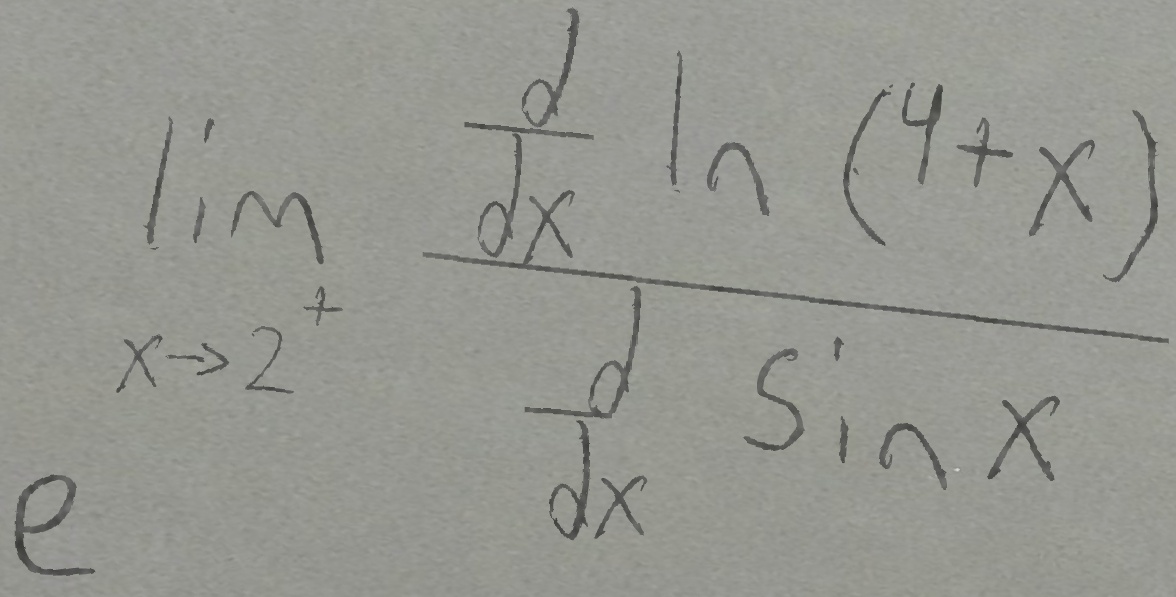 e^{\lim_{x \to 2^+} \frac{\frac{d}{dx} \ln (4+x)}{\frac{d}{dx} \sin x}}